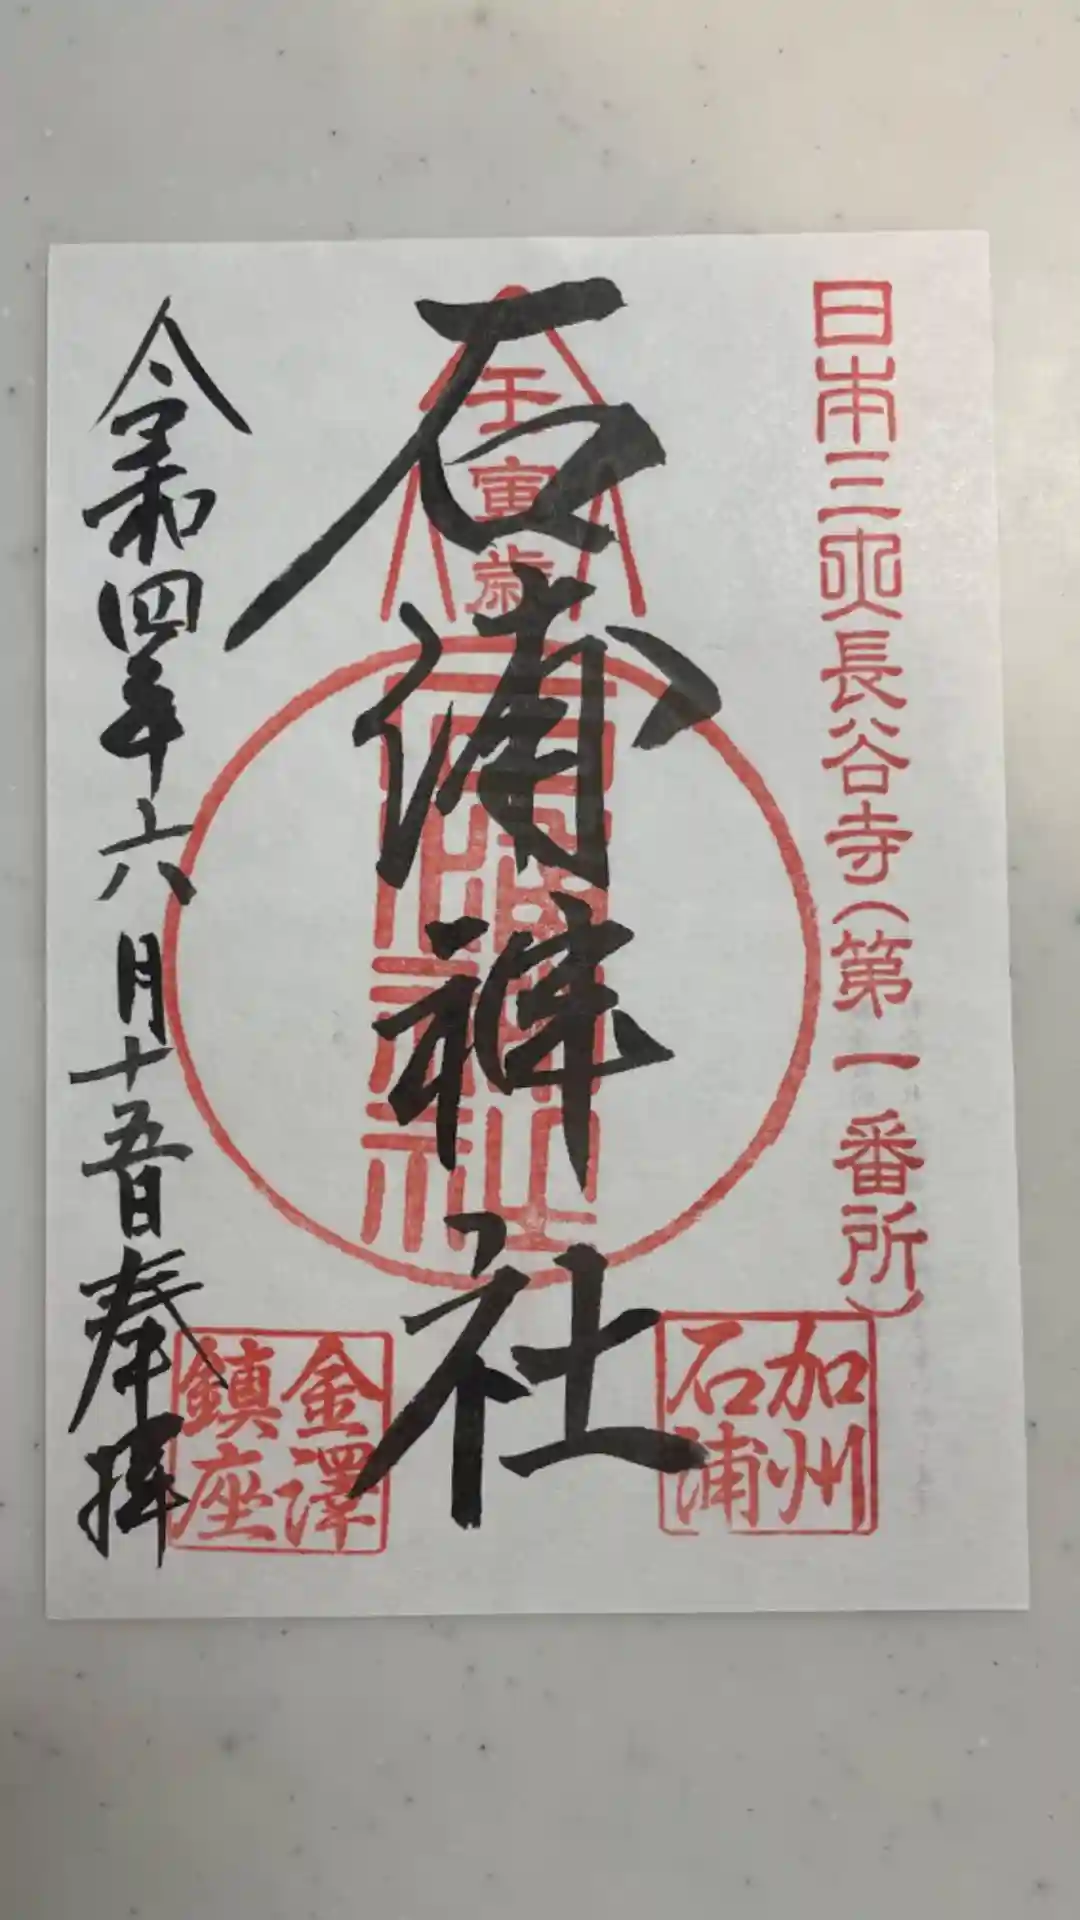 日本三央長谷寺（第一番所）
加州
石浦
壬寅歳
石浦神社
石浦神社
金澤
鎮座
令和四年六月十五日奉拝